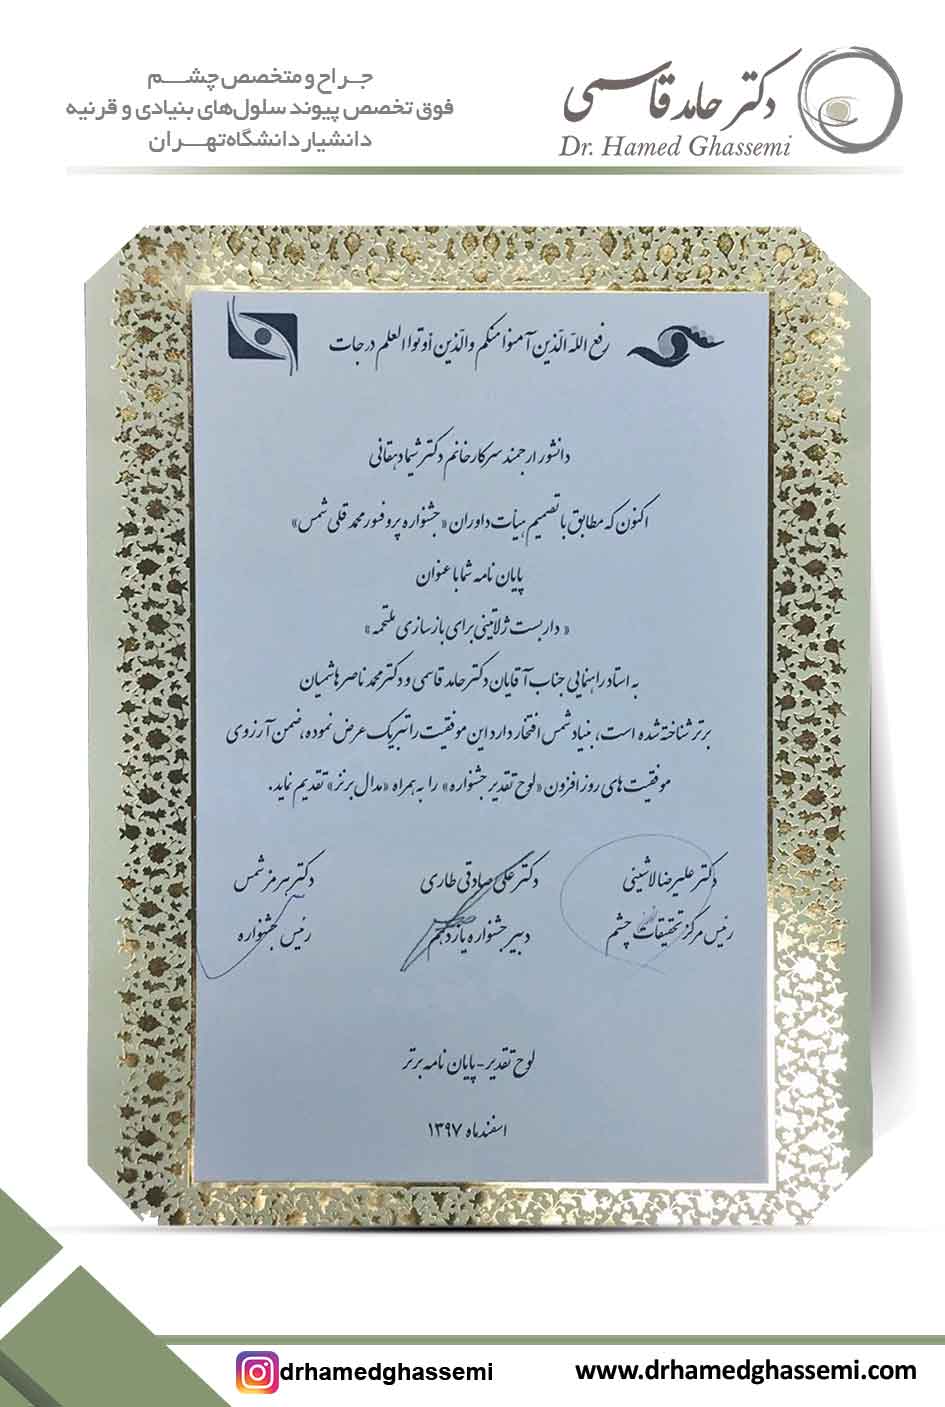 دکتر حامد قاسمی
Dr. Hamed Ghassemi
جراح و متخصص چشم
فوق تخصص پیوند سلول‌های بنیادی و قرنیه
دانشیار دانشگاه تهران
رفع الله الّذین آمنوا منکم والّذین أوتوا العلم درجات
دانشور ارجمند سرکار خانم دکتر شیما دهقانی
اکنون که مطابق با تصمیم هیأت داوران «جشنواره پروفسور محمد قلی شمس»
پایان نامه شما با عنوان
«داربست ژلاتینی برای بازسازی ملتحمه»
به استاد راهنمایی جناب آقایان دکتر حامد قاسمی و دکتر محمد ناصر هاشمیان
برتر شناخته شده است، بنیاد شمس افتخار دارد این موفقیت را تبریک عرض نموده، ضمن آرزوی
موفقیت های روز افزون «لوح تقدیر جشنواره» را به همراه «مدال برنز» تقدیم نماید.
دکتر علیرضا لاشینی دکتر علی صادقی طاری دکتر هرمز شمس
رئیس مرکز تحقیقات چشم دبیر جشنواره یازدهم رئیس جشنواره
لوح تقدیر - پایان نامه برتر
اسفند ماه ۱۳۹۷
drhamedghassemi
www.drhamedghassemi.com